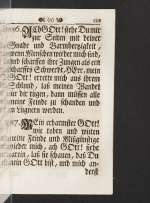 Ach GOtt! stehe Du mir
zur Seiten mit deiner
Gnade und Barmhertzigkeit,
wenn Menschen wieder mich sind,
und schärffen ihre Zungen als ein
scharffes Schwerdt, HErr, mein
GOtt! errette mich aus ihrem
Schlund, laß meinen Wandel
nur dir tügen, dann müssen alle
meine Feinde zu schanden und
zu Lügnern werden.
MEin erbarmster GOtt!
wie toben und wüten
meine Feinde und Mißgünstige
wieder mich, ach GOtt! siehe
darein, laß sie schauen, daß Du
mein GOtt bist, und mich an-